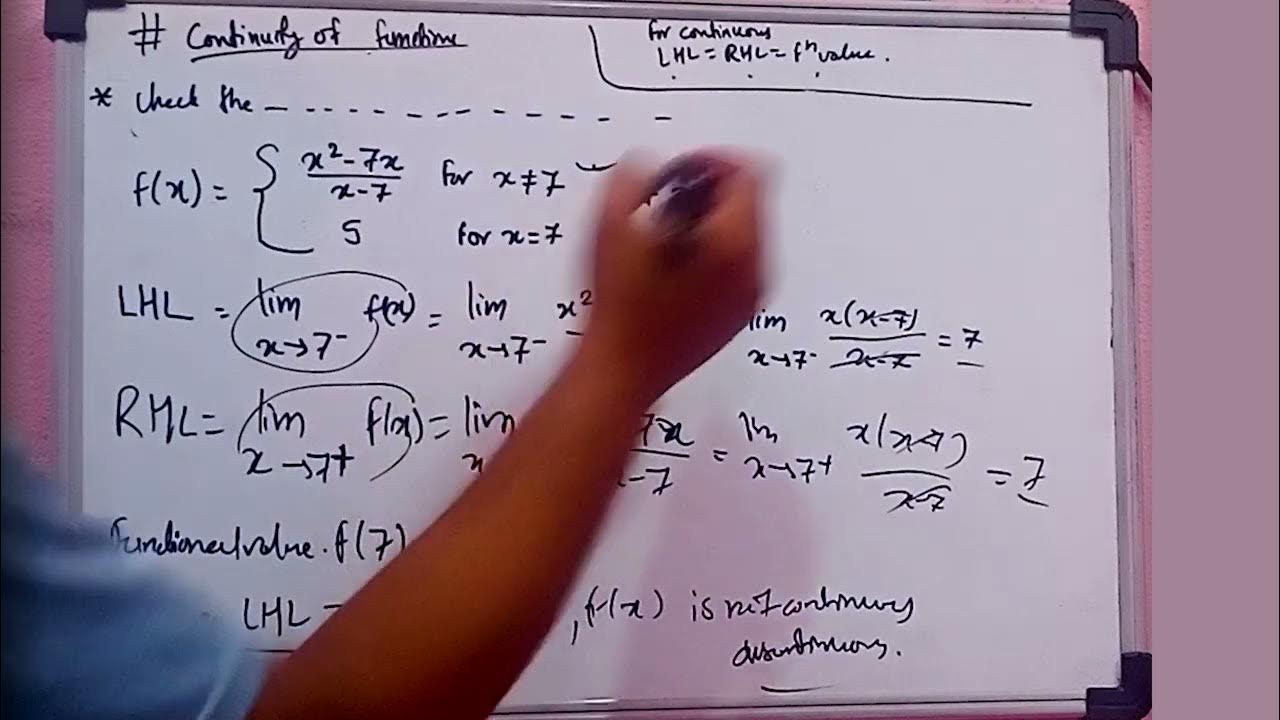 # Continuity of function
For continuous
LHL = RHL = fⁿ value.
* Check the - - - - - - - - - - - - -
f(x) = { x² - 7x / x - 7 for x ≠ 7
5 for x = 7
LHL = lim x→7⁻ f(x) = lim x→7⁻ x² lim x→7⁻ x(x-7) / x-7 = 7
RHL = lim x→7+ f(x) = lim x 7x / x-7 = lim x→7+ x(x-7) / x-7 = 7
Functional value. f(7)
LHL = , f(x) is not continuous
discontinuous.